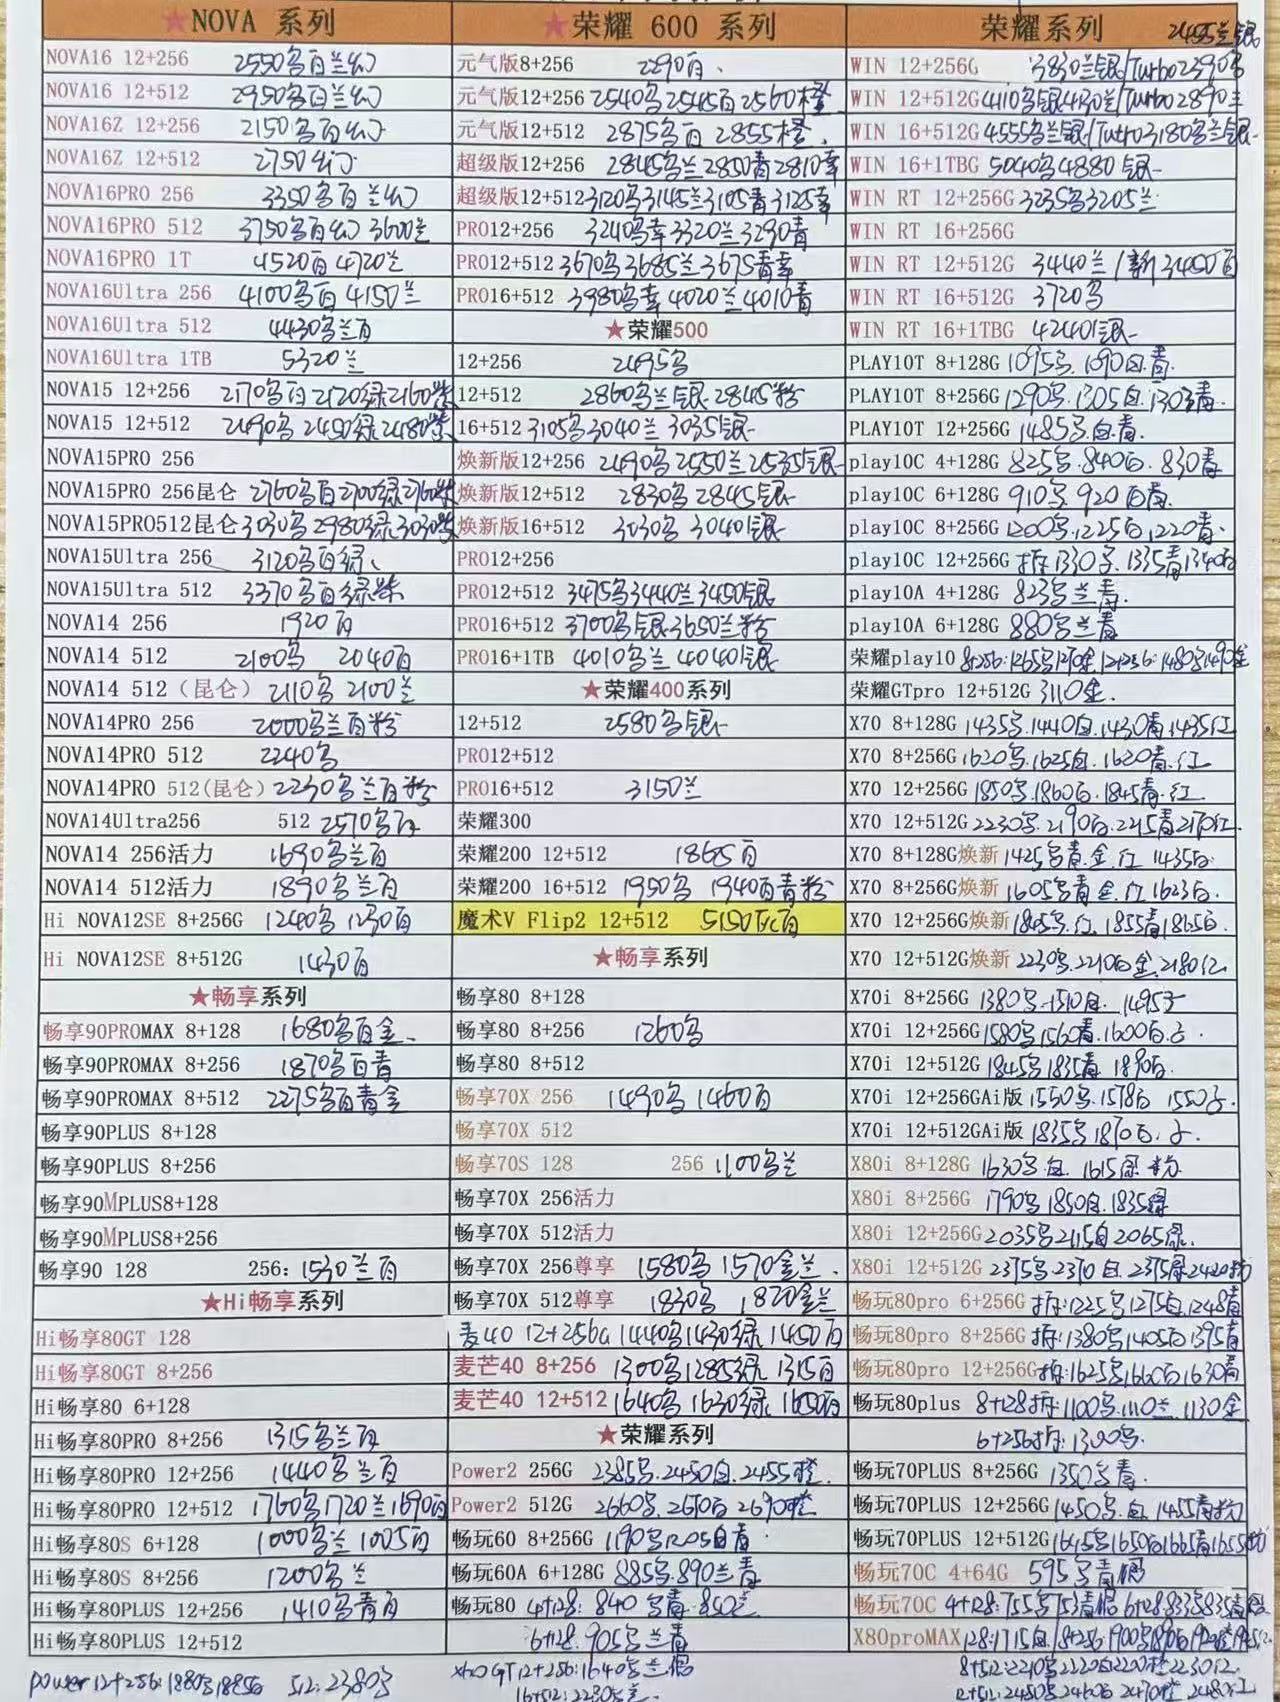 ★NOVA 系列
NOVA16 12+256 2550乌白兰幻
NOVA16 12+512 2950乌白兰幻
NOVA16Z 12+256 2150乌白幻
NOVA16Z 12+512 2750幻
NOVA16PRO 256 3350乌白兰幻
NOVA16PRO 512 3750乌白幻 3600兰
NOVA16PRO 1T 4520白 4720兰
NOVA16Ultra 256 4100乌白 4150兰
NOVA16Ultra 512 4430乌兰白
NOVA16Ultra 1TB 5320兰
NOVA15 12+256 2170乌白2120绿2160紫
NOVA15 12+512 2490乌 2450绿2480紫
NOVA15PRO 256
NOVA15PRO 256昆仑 2760乌白2700绿2760紫
NOVA15PRO512昆仑 3030乌 2980绿 3030紫
NOVA15Ultra 256 3120乌白绿
NOVA15Ultra 512 3370乌白绿紫
NOVA14 256 1920白
NOVA14 512 2100乌 2040白
NOVA14 512（昆仑） 2110乌 2100兰
NOVA14PRO 256 2000乌兰白粉
NOVA14PRO 512 2240乌
NOVA14PRO 512(昆仑) 2230乌兰白粉
NOVA14Ultra256 512 2570乌白
NOVA14 256活力 1690乌兰白
NOVA14 512活力 1890乌兰白
Hi NOVA12SE 8+256G 1240乌 1230白
Hi NOVA12SE 8+512G 1430白
★畅享系列
畅享90PROMAX 8+128 1680乌白金
畅享90PROMAX 8+256 1870乌白青
畅享90PROMAX 8+512 2275乌白青金
畅享90PLUS 8+128
畅享90PLUS 8+256
畅享90MPLUS8+128
畅享90MPLUS8+256
畅享90 128 256: 1530兰白
★Hi畅享系列
Hi畅享80GT 128
Hi畅享80GT 8+256
Hi畅享80 6+128
Hi畅享80PRO 8+256 1315乌兰白
Hi畅享80PRO 12+256 1440乌兰白
Hi畅享80PRO 12+512 1760乌1720兰1690白
Hi畅享80S 6+128 1000乌兰 1005白
Hi畅享80S 8+256 1200乌兰
Hi畅享80PLUS 12+256 1410乌青白
Hi畅享80PLUS 12+512
power 12+256:1880乌1885白 512:2380乌
★荣耀 600 系列
元气版8+256 2290白
元气版12+256 2540乌2545白2560橙
元气版12+512 2875乌白 2855橙
超级版12+256 2845乌兰2850青2810幸
超级版12+512 3120乌3145兰3105青3125幸
PRO12+256 3240乌幸3320兰3290青
PRO12+512 3670乌3685兰3675青幸
PRO16+512 3980乌幸 4020兰4010青
★荣耀500
12+256 2495乌
12+512 2860乌兰银 2845粉
16+512 3105乌3040兰 3035银
焕新版12+256 2490乌2550兰2535银
焕新版12+512 2830乌 2845银
焕新版16+512 3030乌 3040银
PRO12+256
PRO12+512 3475乌3440兰 3450银
PRO16+512 3700乌银3650兰粉
PRO16+1TB 4010乌兰 4040银
★荣耀400系列
12+512 2580乌银
PRO12+512
PRO16+512 3150兰
荣耀300
荣耀200 12+512 1865白
荣耀200 16+512 1950乌 1940白青粉
魔术V Flip2 12+512 5150灰白
★畅享系列
畅享80 8+128
畅享80 8+256 1260乌
畅享80 8+512
畅享70X 256 1490乌 1460白
畅享70X 512
畅享70S 128 256 1100乌兰
畅享70X 256活力
畅享70X 512活力
畅享70X 256尊享 1580乌 1570金兰
畅享70X 512尊享 1830乌 1820金兰
麦40 12+256G 1440乌1430绿 1450白
麦芒40 8+256 1300乌1285绿 1315白
麦芒40 12+512 1640乌 1630绿 1650白
★荣耀系列
Power2 256G 2385乌.2450白.2455橙
Power2 512G 2660乌.2670白 2690橙
畅玩60 8+256G 1190乌1205白青
畅玩60A 6+128G 885乌.890兰青
畅玩80 4+128: 840 乌青 850兰
6+128.905乌兰青
GT12+256:1640乌兰
16+512:2230乌兰
荣耀系列 2455兰银
WIN 12+256G 3830兰银/Turbo2390乌
WIN 12+512G 4110乌银4430兰/Turbo2890兰
WIN 16+512G 4555乌兰银/Turbo3180乌兰银
WIN 16+1TBG 5040乌4880银
WIN RT 12+256G 3235乌3205兰
WIN RT 16+256G
WIN RT 12+512G 3440兰/新3450白
WIN RT 16+512G 3720乌
WIN RT 16+1TBG 4240银
PLAY10T 8+128G 1095乌.1090白青
PLAY10T 8+256G 1290乌.1305白.1303青
PLAY10T 12+256G 1485乌.白.青
play10C 4+128G 825乌.840白.830青
play10C 6+128G 910乌.920白青
play10C 8+256G 1200乌.1225白.1220青
play10C 12+256G 拆1330乌.1335青1340白
play10A 4+128G 823乌兰青
play10A 6+128G 880乌兰青
荣耀play10 8+256:1265乌1270金.12+256:1480乌1490金
荣耀GTpro 12+512G 3110金
X70 8+128G 1435乌.1440白.1430青.1435红
X70 8+256G 1620乌.1625白.1620青.红
X70 12+256G 1850乌.1860白.1845青.红
X70 12+512G 2230乌.2190白.2215青2170红
X70 8+128G焕新 1425乌青.金.红 1435白
X70 8+256G焕新 1605乌青金.红1623白
X70 12+256G焕新 1845乌.红.1855青1865白
X70 12+512G焕新 2230乌.2210白金.2180红
X70i 8+256G 1380乌.1510白.1495子
X70i 12+256G 1580乌1560青.1600白.子
X70i 12+512G 1845乌1835青 1890白
X70i 12+256GAi版 1550乌.1578白 1550子
X70i 12+512GAi版 1835乌1870白.子
X80i 8+128G 1630乌白 1615绿 粉
X80i 8+256G 1790乌1850白.1835绿
X80i 12+256G 2035乌2115白2065绿
X80i 12+512G 2375乌.2370白.2375绿2420粉
畅玩80pro 6+256G 拆:1225乌1275白.1248青
畅玩80pro 8+256G 拆:1380乌1405白1395青
畅玩80pro 12+256G 拆:1625乌1660白1630青
畅玩80plus 8+128拆:1100乌.1110兰.1130金
6+256拆:1300乌
畅玩70PLUS 8+256G 1350乌青
畅玩70PLUS 12+256G 1450乌.白.1455青粉
畅玩70PLUS 12+512G 1645乌1650白1665青1655粉
畅玩70C 4+64G 595乌青
畅玩70C 4+128:755乌753青 6+128
X80proMAX 128:1715白/8+256:1900乌
8+512:2210乌2220白2200橙2230红
12+512:2450乌2460白 2470橙 2480红